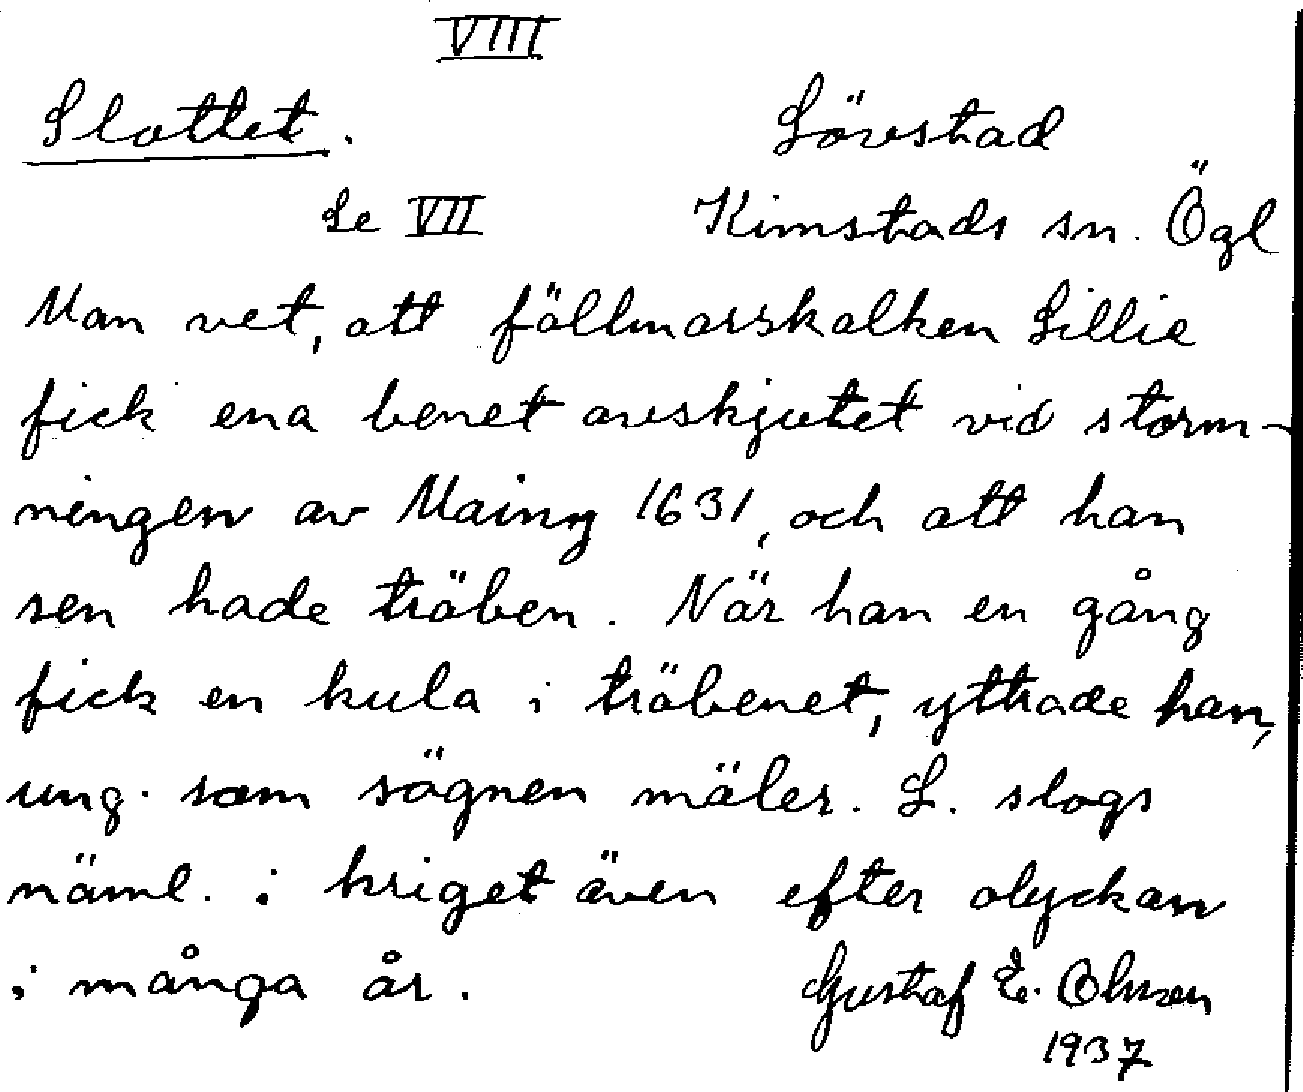 VIII
Slottet.
Lövstad
Se VII
Kimstads sn. Ögl
Man vet, att fällmarskalken Lillie
fick ena benet avskjutet vid storm-
ningen av Mainz 1631, och att han
sen hade träben. När han en gång
fick en kula i träbenet, yttrade han,
ung. som sägnen mäler. L. slogs
näml. i kriget även efter olyckan
i många år.
Gustaf E. Olsson
1937